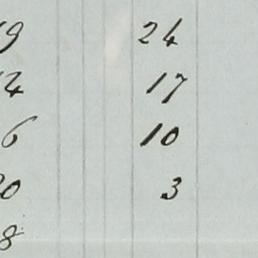 19 24
12 17
6 10
20 3
8